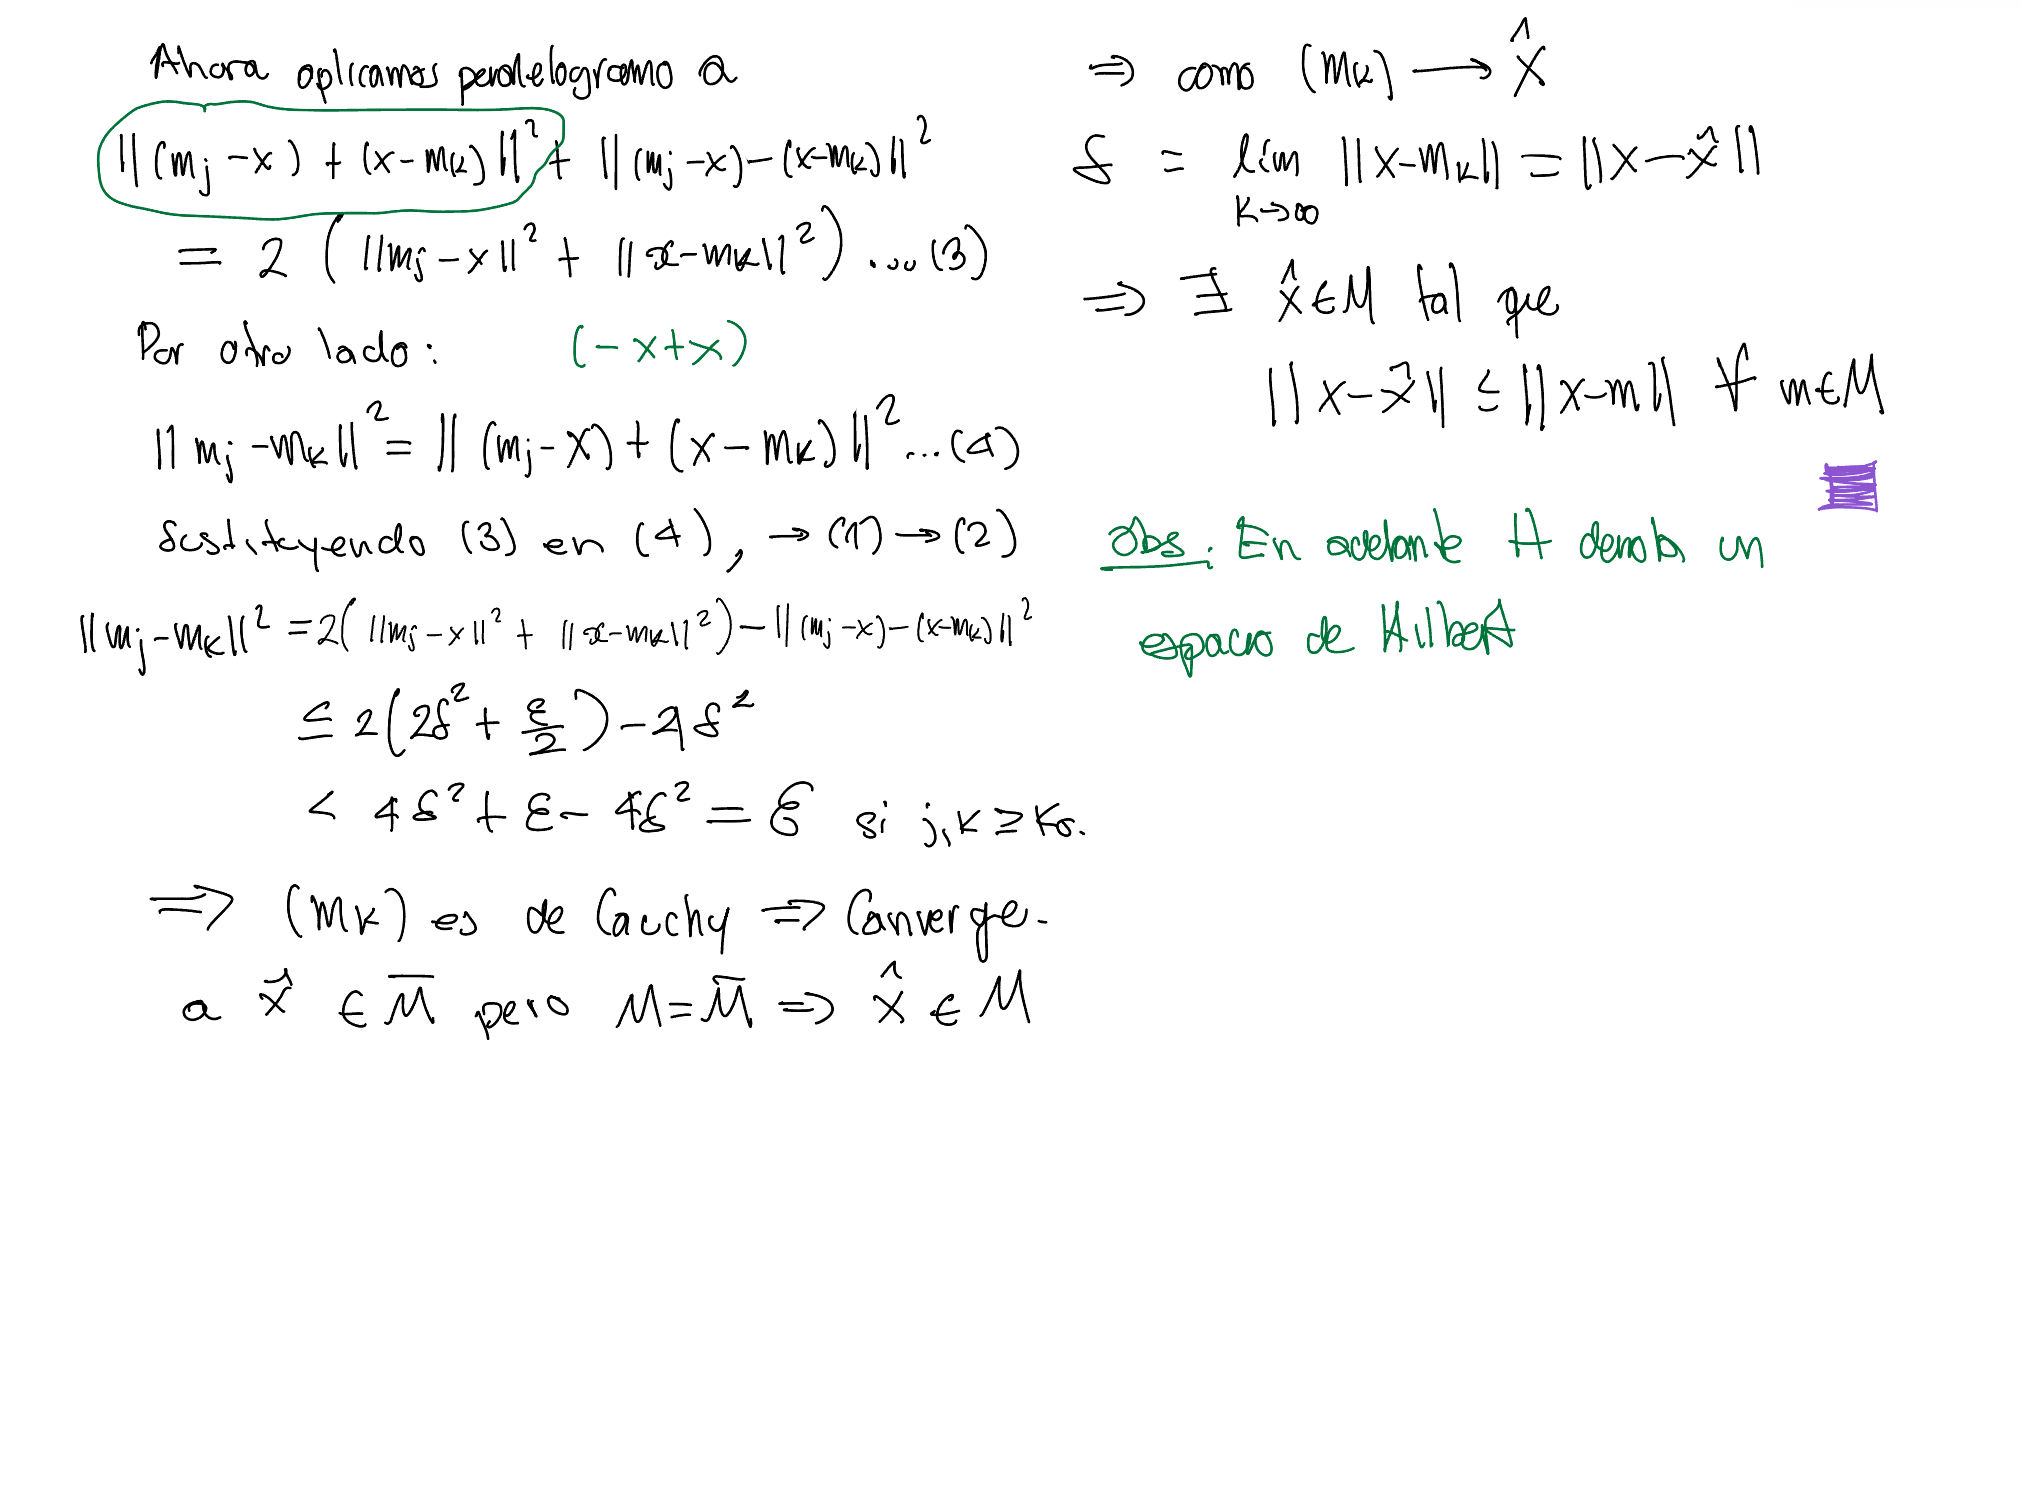 Ahora aplicamos paralelogramo a
||(mj -x) + (x-mk)||² + ||(mj -x)-(x-mk)||²
= 2 (||mj -x||² + ||x-mk||²) ... (3)
Por otro lado: (-x+x)
||mj -mk||² = ||(mj-x)+(x-mk)||² ...(4)
Sustituyendo (3) en (4), → (1) → (2)
||mj-mk||² = 2(||mj-x||² + ||x-mk||²) - ||(mj -x)-(x-mk)||²
≤ 2(2δ² + ε/2) - 4δ²
< 4δ² + ε - 4δ² = ε si j,k ≥ k₀.
⇒ (mk) es de Cauchy ⇒ Converge.
a x̂ ∈ M̅ pero M = M̅ ⇒ x̂ ∈ M
⇒ como (mk) ⟶ x̂
δ = lím ||x-mk|| = ||x-x̂||
k→∞
⇒ ∃ x̂∈M tal que
||x-x̂|| ≤ ||x-m|| ∀ m∈M
Obs. En adelante H denota un
espacio de Hilbert